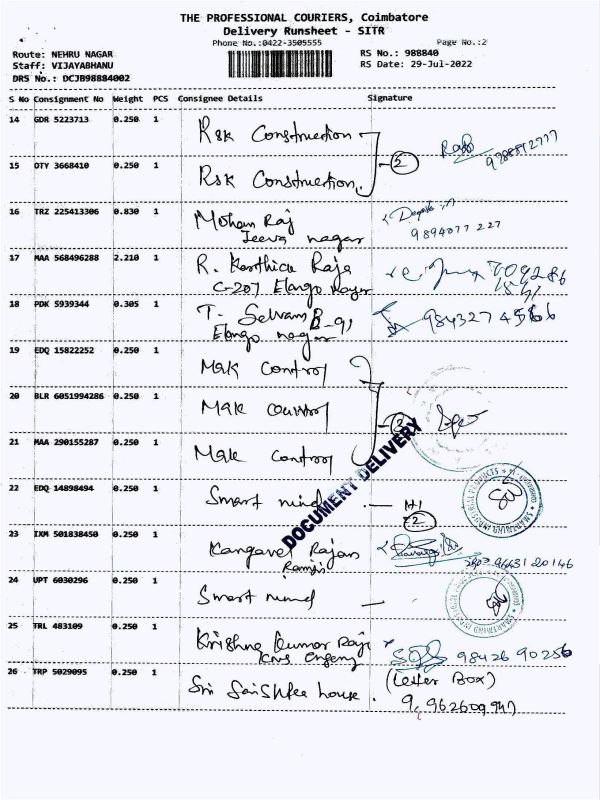 THE PROFESSIONAL COURIERS, Coimbatore
Delivery Runsheet - SITR
Phone No.:0422-3505555 Page No.:2
Route: NEHRU NAGAR RS No.: 988840
Staff: VIJAYABHANU RS Date: 29-Jul-2022
DRS No.: DCJB98884002
S No Consignment No Weight PCS Consignee Details Signature
14 GDR 5223713 0.250 1 Rsk Construction
15 OTY 3668410 0.250 1 Rsk Construction. 2
16 TRZ 225413306 0.830 1 Mohan Raj
Jeeva nagar
9894077 227
17 MAA 568496288 2.210 1 R. Karthick Raja
C-207 Elango Nagar
18 PDK 5939344 0.305 1 T. Selvam B-91
Elango nagar
98432 74566
19 EDQ 15822252 0.250 1 Mak Control
20 BLR 6051994286 0.250 1 Mak control 3
21 MAA 290155287 0.250 1 Mak Control
DOCUMENT DELIVERY
22 EDQ 14898494 0.250 1 Smart mind
23 IXM 501838450 0.250 1 Kangavel Rajan
96431 20146
24 UPT 6030296 0.250 1 Smart mind
25 TRL 483109 0.250 1 Krishna Kumar Raji
98426 90256
26 TRP 5029095 0.250 1 Sri Saishree house.
(Letter Box)